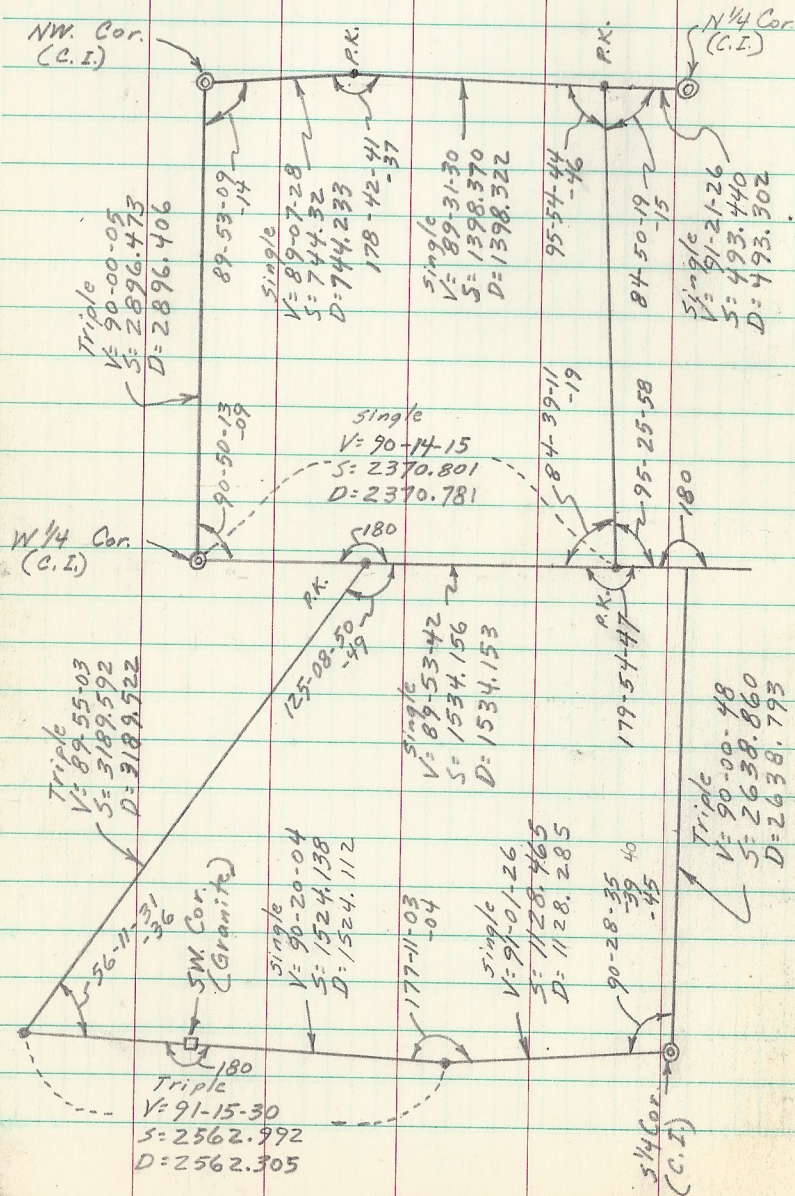 NW. Cor.
(C.I.)
P.K.
P.K.
N 1/4 Cor.
(C.I.)
Triple
V= 90-00-05
S= 2896.473
D= 2896.406
89-53-09
-14
Single
V= 89-07-28
S= 744.32
D= 744.233
178-42-41
-37
Single
V= 89-31-30
S= 1398.370
D= 1398.322
95-54-44
-46
84-50-19
-15
Single
V= 91-21-26
S= 493.440
D= 493.302
90-50-13
-09
Single
V= 90-14-15
S= 2370.801
D= 2370.781
84-39-11
-19
95-25-58
180
W 1/4 Cor.
(C.I.)
180
P.K.
125-08-50
-49
Single
V= 89-53-42
S= 1534.156
D= 1534.153
P.K.
179-54-47
Triple
V= 89-55-03
S= 3189.592
D= 3189.522
Triple
V= 90-00-48
S= 2638.860
D= 2638.793
56-11-31
-36
SW. Cor.
(Granite)
Single
V= 90-20-04
S= 1524.138
D= 1524.112
177-11-03
-04
Single
V= 91-01-26
S= 1128.465
D= 1128.285
90-28-35
-39 40
-45
180
Triple
V= 91-15-30
S= 2562.992
D= 2562.305
S 1/4 Cor.
(C.I.)